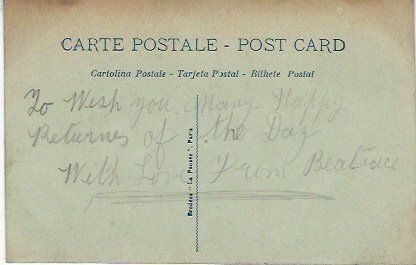 CARTE POSTALE - POST CARD
Cartolina Postale - Tarjeta Postal - Bilhete Postal
To Wish you Many Happy
Returns of the Day
With Love From Beatrice
Brodées "La Pensée", Paris